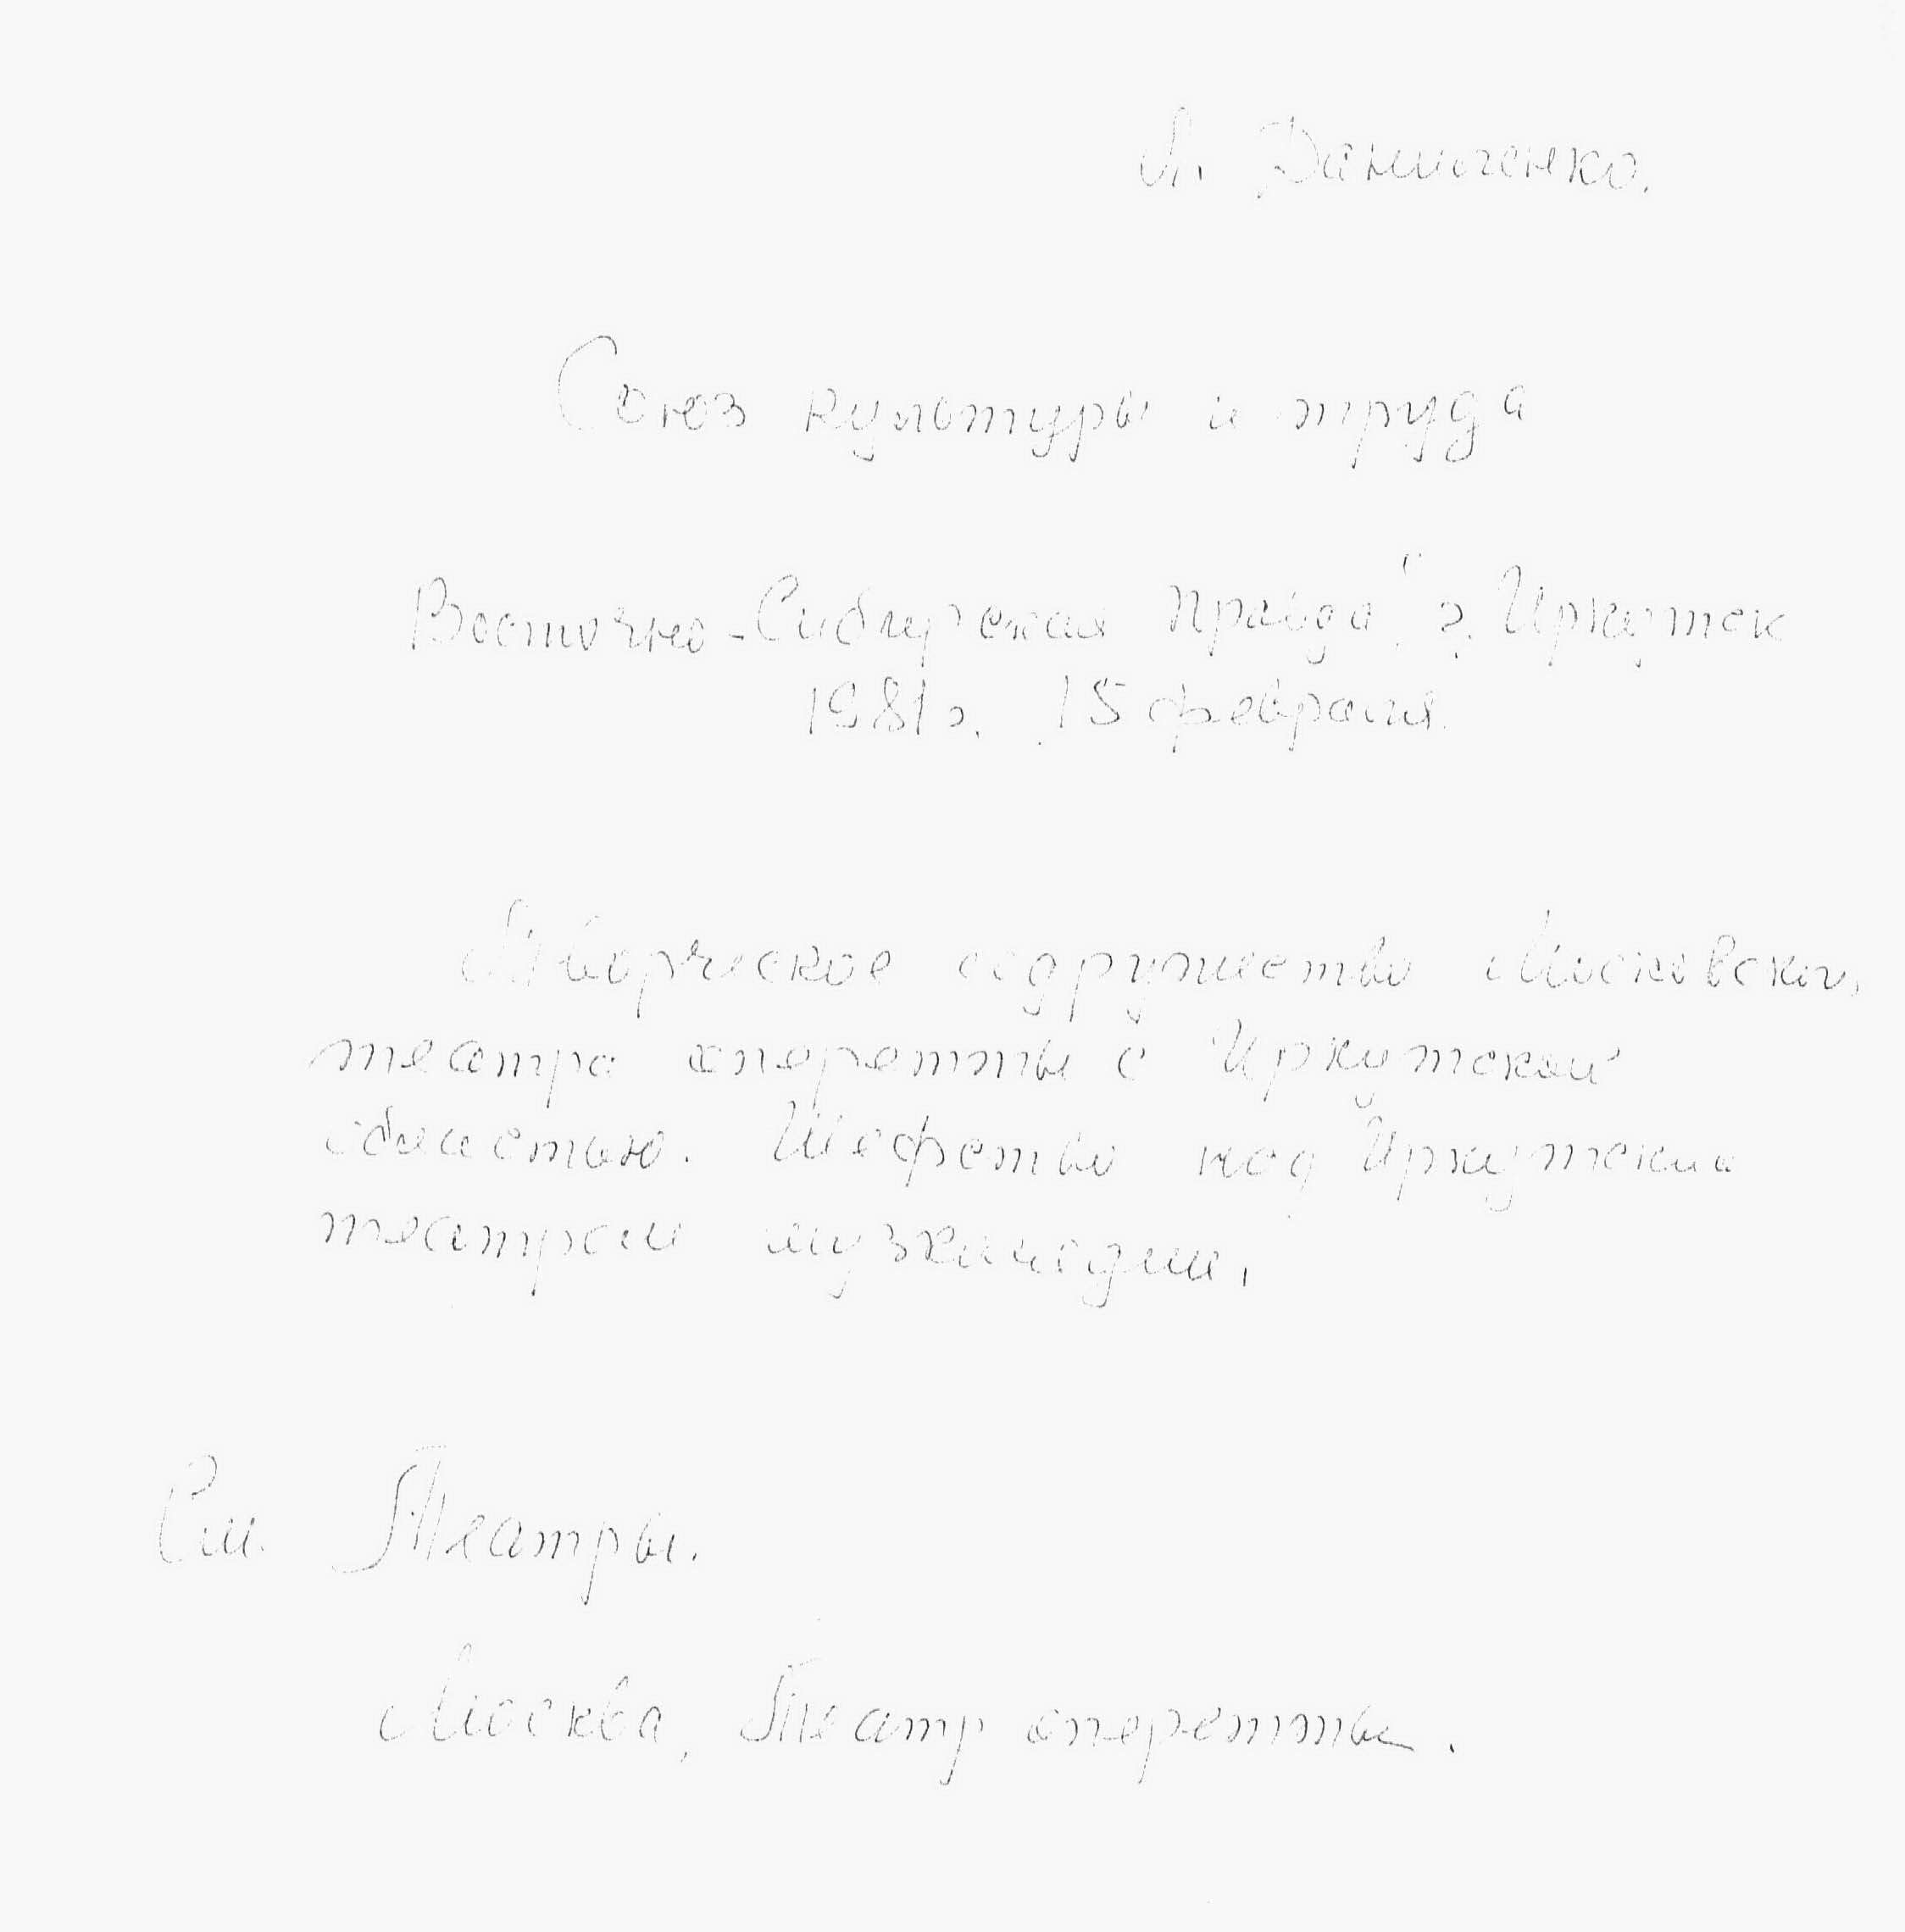 Л. Даниленко.
Союз культуры и труда
Восточно-Сибирская правда", г. Иркутск
1981г. 15 февраля.
Творческое содружество Московского
театра оперетты с Иркутской
областью. Шефство над Иркутским
театром музкомедии.
См. Театры.
Москва, Театр оперетты.